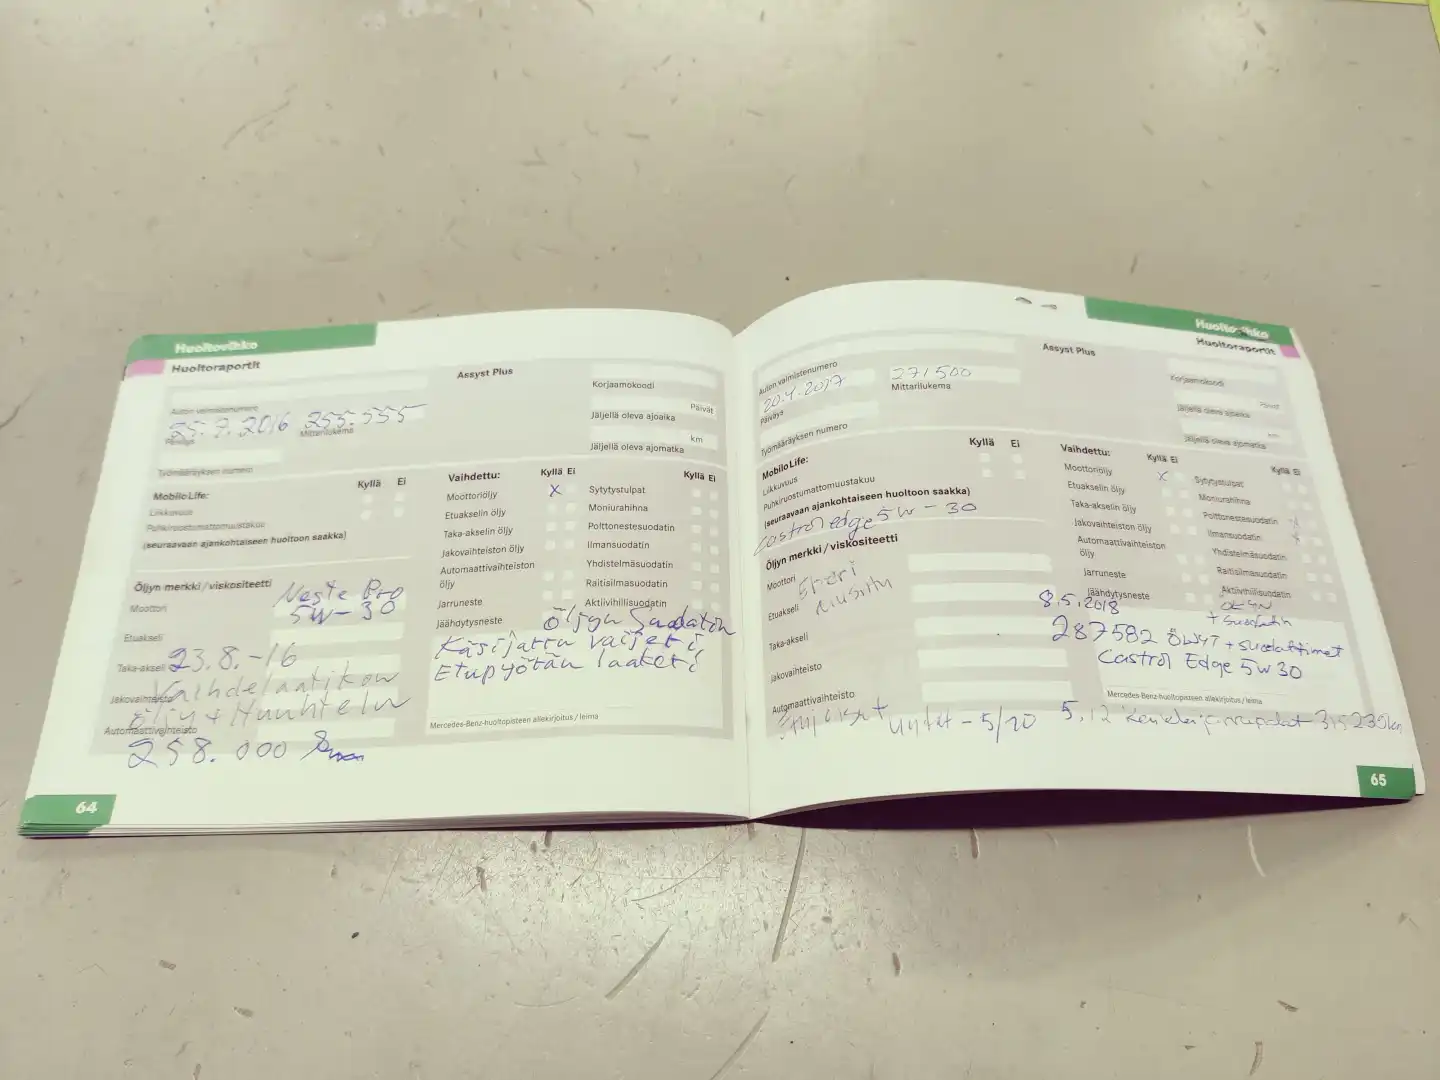 Huoltovihko
Huoltoraportit
Assyst Plus
Korjaamokoodi
Auton valmistenumero
25.7.2016 255.555
Päiväys
Mittarilukema
Päivät
Jäljellä oleva ajoaika
km
Jäljellä oleva ajomatka
Työmääräyksen numero
MobiloLife:
Kyllä Ei
Liikkuvuus
Puhkiruostumattomuustakuu
(seuraavaan ajankohtaiseen huoltoon saakka)
Öljyn merkki / viskositeetti
Moottori
Neste Pro
5W-30
Etuakseli
Taka-akseli
23.8.-16
Jakovaihteisto
Vaihdelaatikon
öljy + Huuhtelu
Automaattivaihteisto
258.000
Vaihdettu:
Kyllä Ei
Moottoriöljy X
Etuakselin öljy
Taka-akselin öljy
Jakovaihteiston öljy
Automaattivaihteiston
öljy
Jarruneste
Jäähdytysneste
Kyllä Ei
Sytytystulpat
Moniurahihna
Polttonestesuodatin
Ilmansuodatin
Yhdistelmäsuodatin
Raitisilmasuodatin
Aktiivihiilisuodatin
Öljyn Suodatin
Käsijarru vaijeri,
Etupyörän laakeri
Mercedes-Benz-huoltopisteen allekirjoitus / leima
64
Huoltovihko
Huoltoraportit
Assyst Plus
Korjaamokoodi
Auton valmistenumero
20.4.2017 271500
Päiväys
Mittarilukema
Päivät
Jäljellä oleva ajoaika
km
Jäljellä oleva ajomatka
Työmääräyksen numero
MobiloLife:
Kyllä Ei
Liikkuvuus
Puhkiruostumattomuustakuu
(seuraavaan ajankohtaiseen huoltoon saakka)
Castrol edge 5W-30
Öljyn merkki / viskositeetti
Moottori
Etuakseli
Taka-akseli
Jakovaihteisto
Automaattivaihteisto
Vaihdettu:
Kyllä Ei
Moottoriöljy X
Etuakselin öljy
Taka-akselin öljy
Jakovaihteiston öljy
Automaattivaihteiston
öljy
Jarruneste
Jäähdytysneste
Kyllä Ei
Sytytystulpat
Moniurahihna
Polttonestesuodatin
Ilmansuodatin
Yhdistelmäsuodatin
Raitisilmasuodatin
Aktiivihiilisuodatin
8.5.2018
287582 Öljyt + suodattimet
Castrol Edge 5W30
Mercedes-Benz-huoltopisteen allekirjoitus / leima
uudet - 5/20
5.12 315230km
65